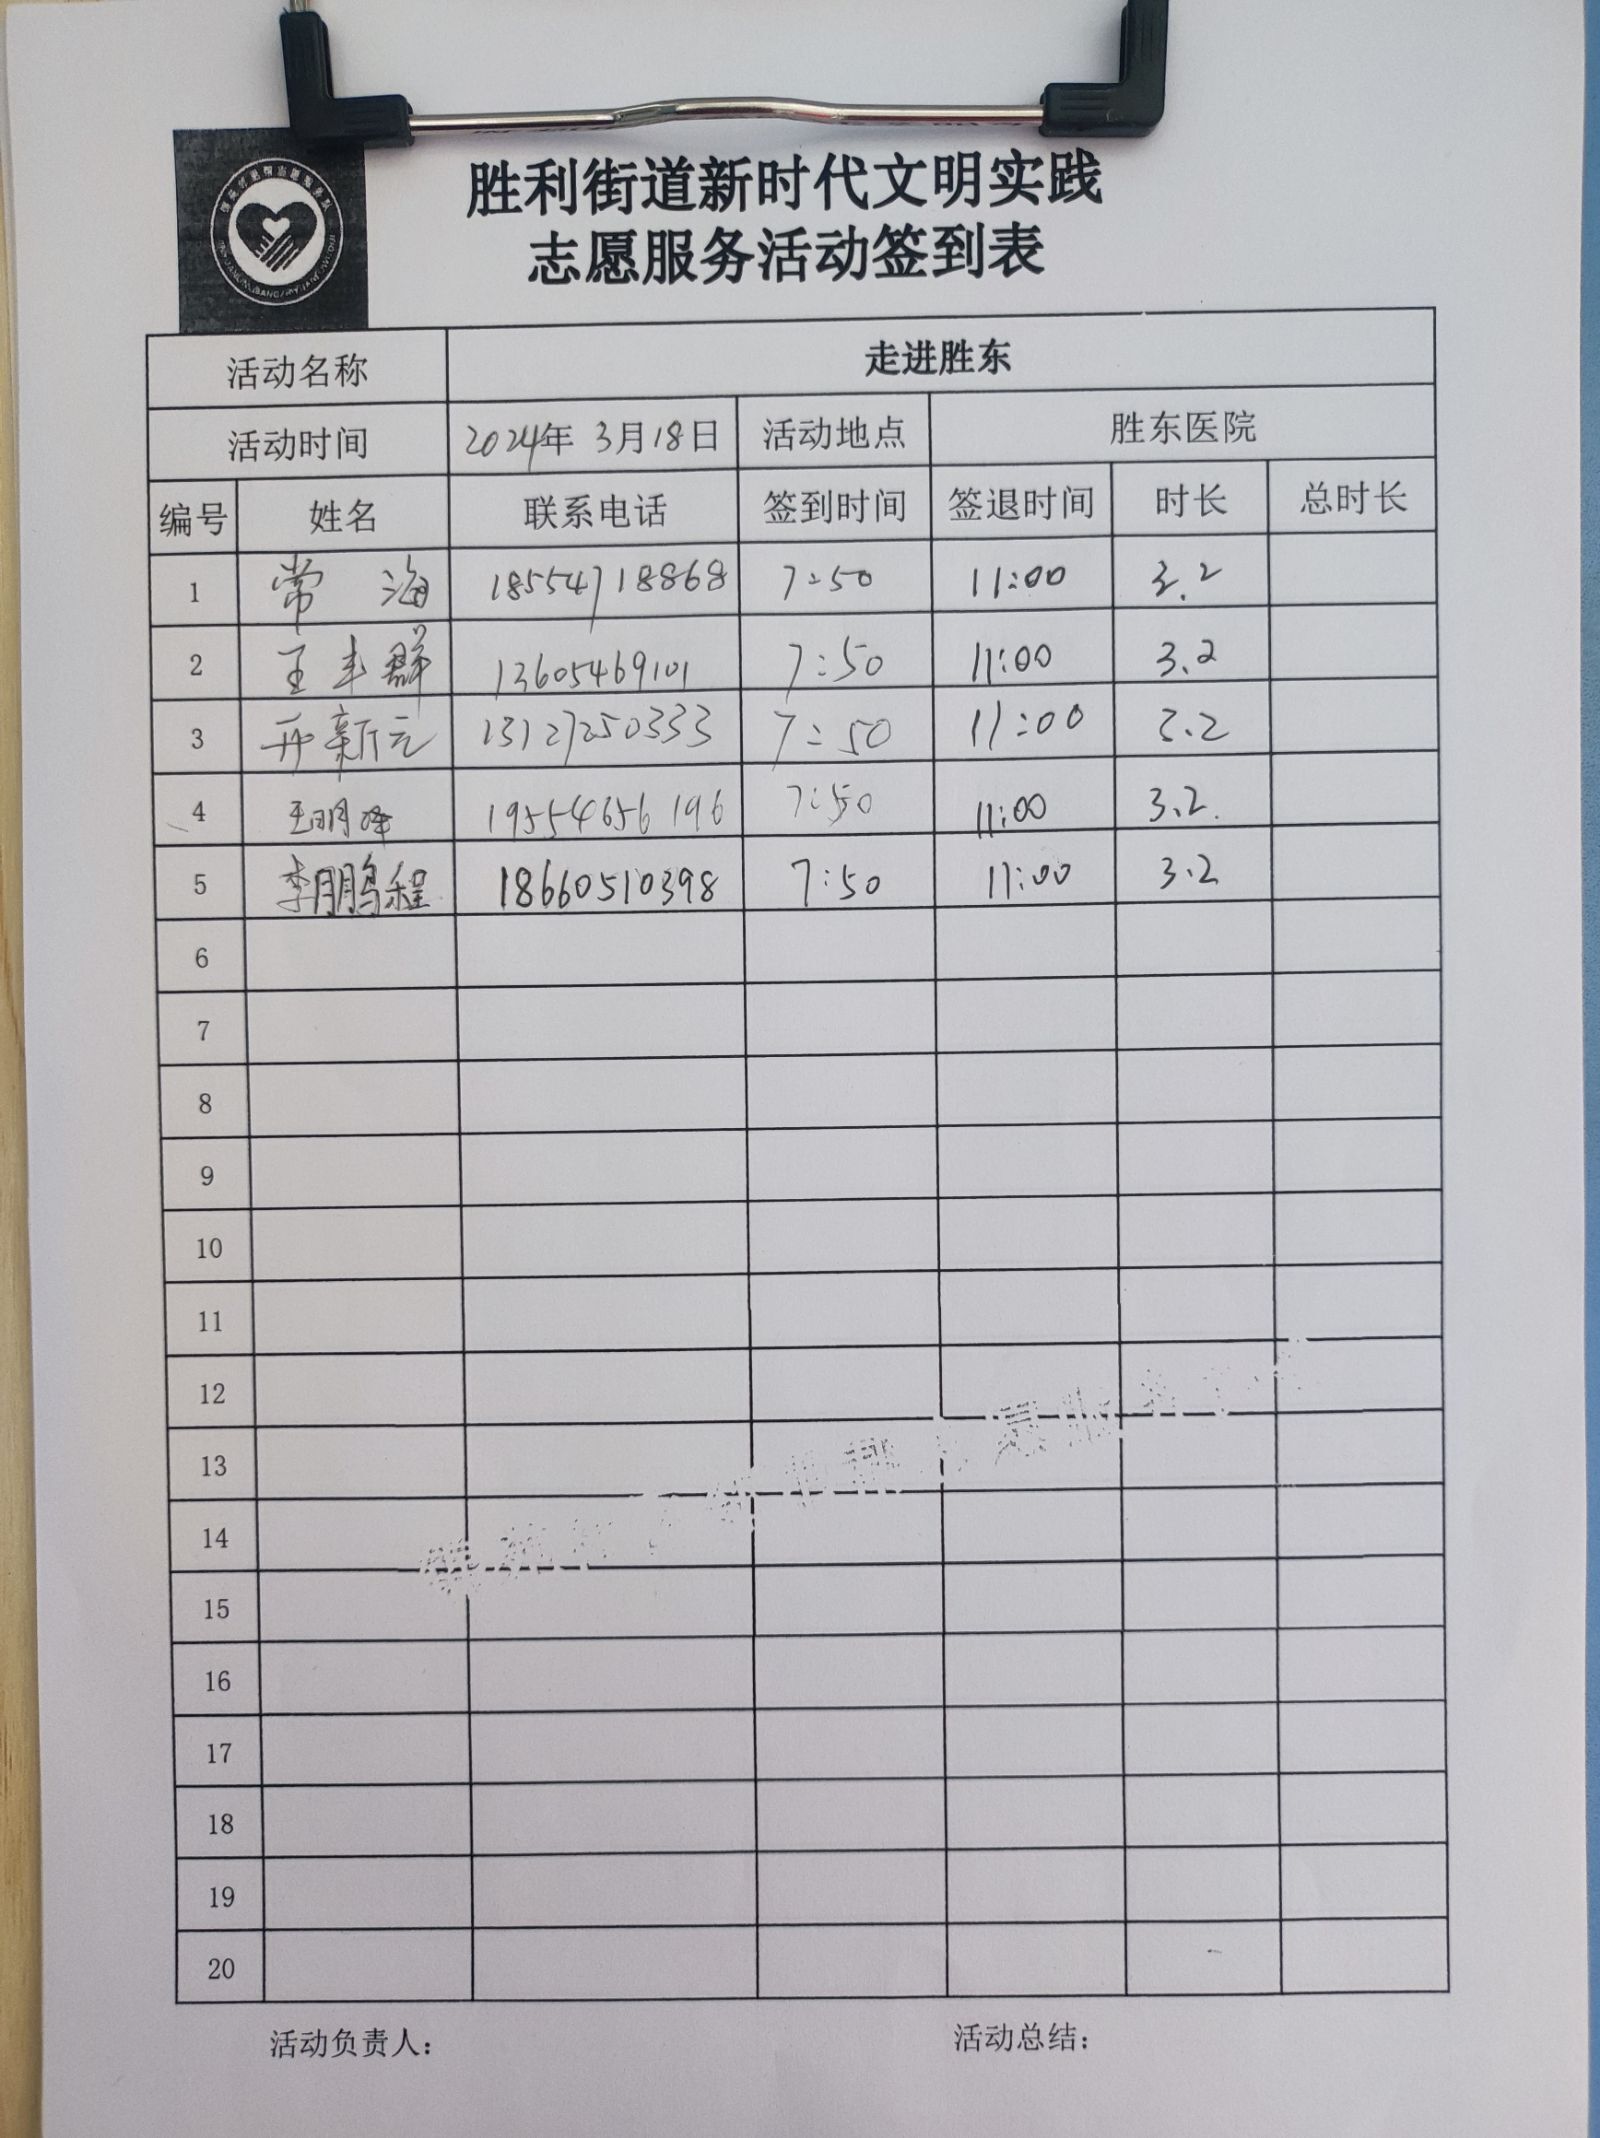 胜利街道新时代文明实践
志愿服务活动签到表
活动名称 走进胜东
活动时间 2024年 3月18日 活动地点 胜东医院
编号 姓名 联系电话 签到时间 签退时间 时长 总时长
1 常海 18554718868 7:50 11:00 3.2
2 王丰群 13605469101 7:50 11:00 3.2
3 新元 13127250333 7:50 11:00 3.2
4 王明 19554656196 7:50 11:00 3.2
5 李鹏程 18660510398 7:50 11:00 3.2
6
7
8
9
10
11
12
13
14
15
16
17
18
19
20
活动负责人： 活动总结：